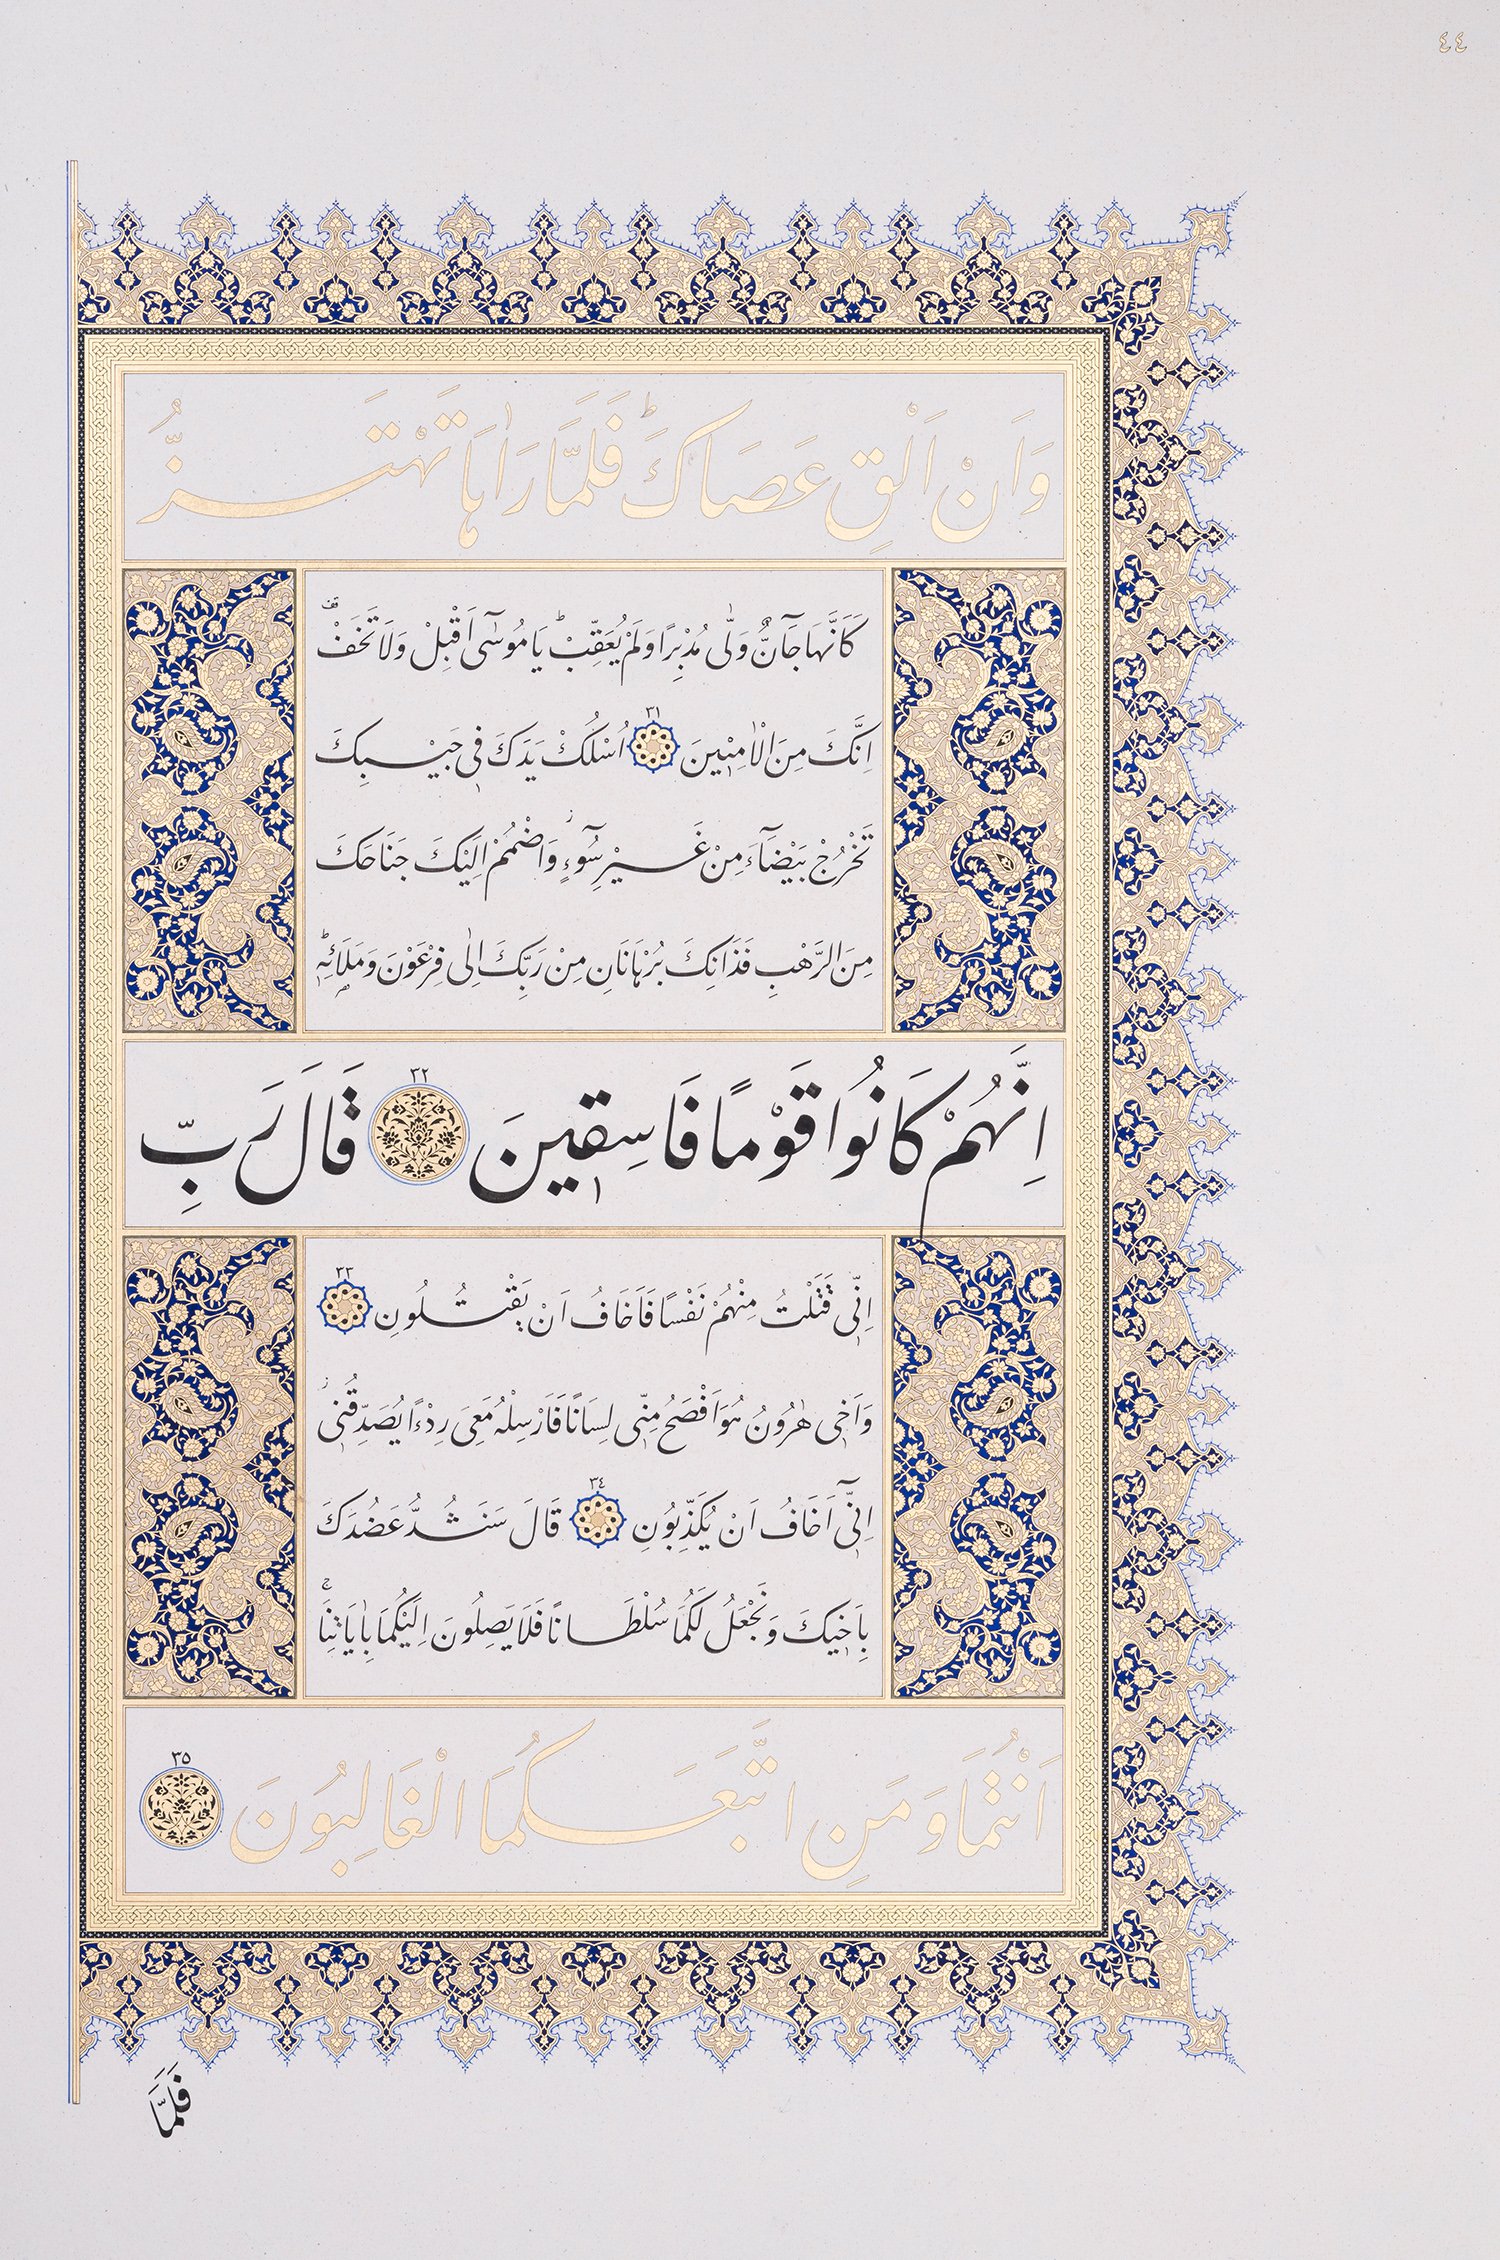 ٤٤
وَاَنْ اَلْقِ عَصَاكَۜ فَلَمَّا رَاٰهَا تَهْتَزُّ
كَاَنَّهَا جَٓانٌّ وَلّٰى مُدْبِرًا وَلَمْ يُعَقِّبْۜ يَا مُوسٰٓى اَقْبِلْ وَلَا تَخَفْ۠
اِنَّكَ مِنَ الْاٰمِنٖينَ ٣١ اُسْلُكْ يَدَكَ فٖي جَيْبِكَ
تَخْرُجْ بَيْضَٓاءَ مِنْ غَيْرِ سُٓوءٍؗ وَاضْمُمْ اِلَيْكَ جَنَاحَكَ
مِنَ الرَّهْبِ فَذَانِكَ بُرْهَانَانِ مِنْ رَبِّكَ اِلٰى فِرْعَوْنَ وَمَلَا۬ئِهٖۜ
اِنَّهُمْ كَانُوا قَوْمًا فَاسِقٖينَ ٣٢ قَالَ رَبِّ
اِنّٖي قَتَلْتُ مِنْهُمْ نَفْسًا فَاَخَافُ اَنْ يَقْتُلُونِ ٣٣
وَاَخٖي هٰرُونُ هُوَ اَفْصَحُ مِنّٖي لِسَانًا فَاَرْسِلْهُ مَعِيَ رِدْءًا يُصَدِّقُنٖيؗ
اِنّٖٓي اَخَافُ اَنْ يُكَذِّبُونِ ٣٤ قَالَ سَنَشُدُّ عَضُدَكَ
بِاَخٖيكَ وَنَجْعَلُ لَكُمَا سُلْطَانًا فَلَا يَصِلُونَ اِلَيْكُمَا بِاٰيَاتِنَاۚ
اَنْتُمَا وَمَنِ اتَّبَعَكُمَا الْغَالِبُونَ ٣٥
فَلَمَّا